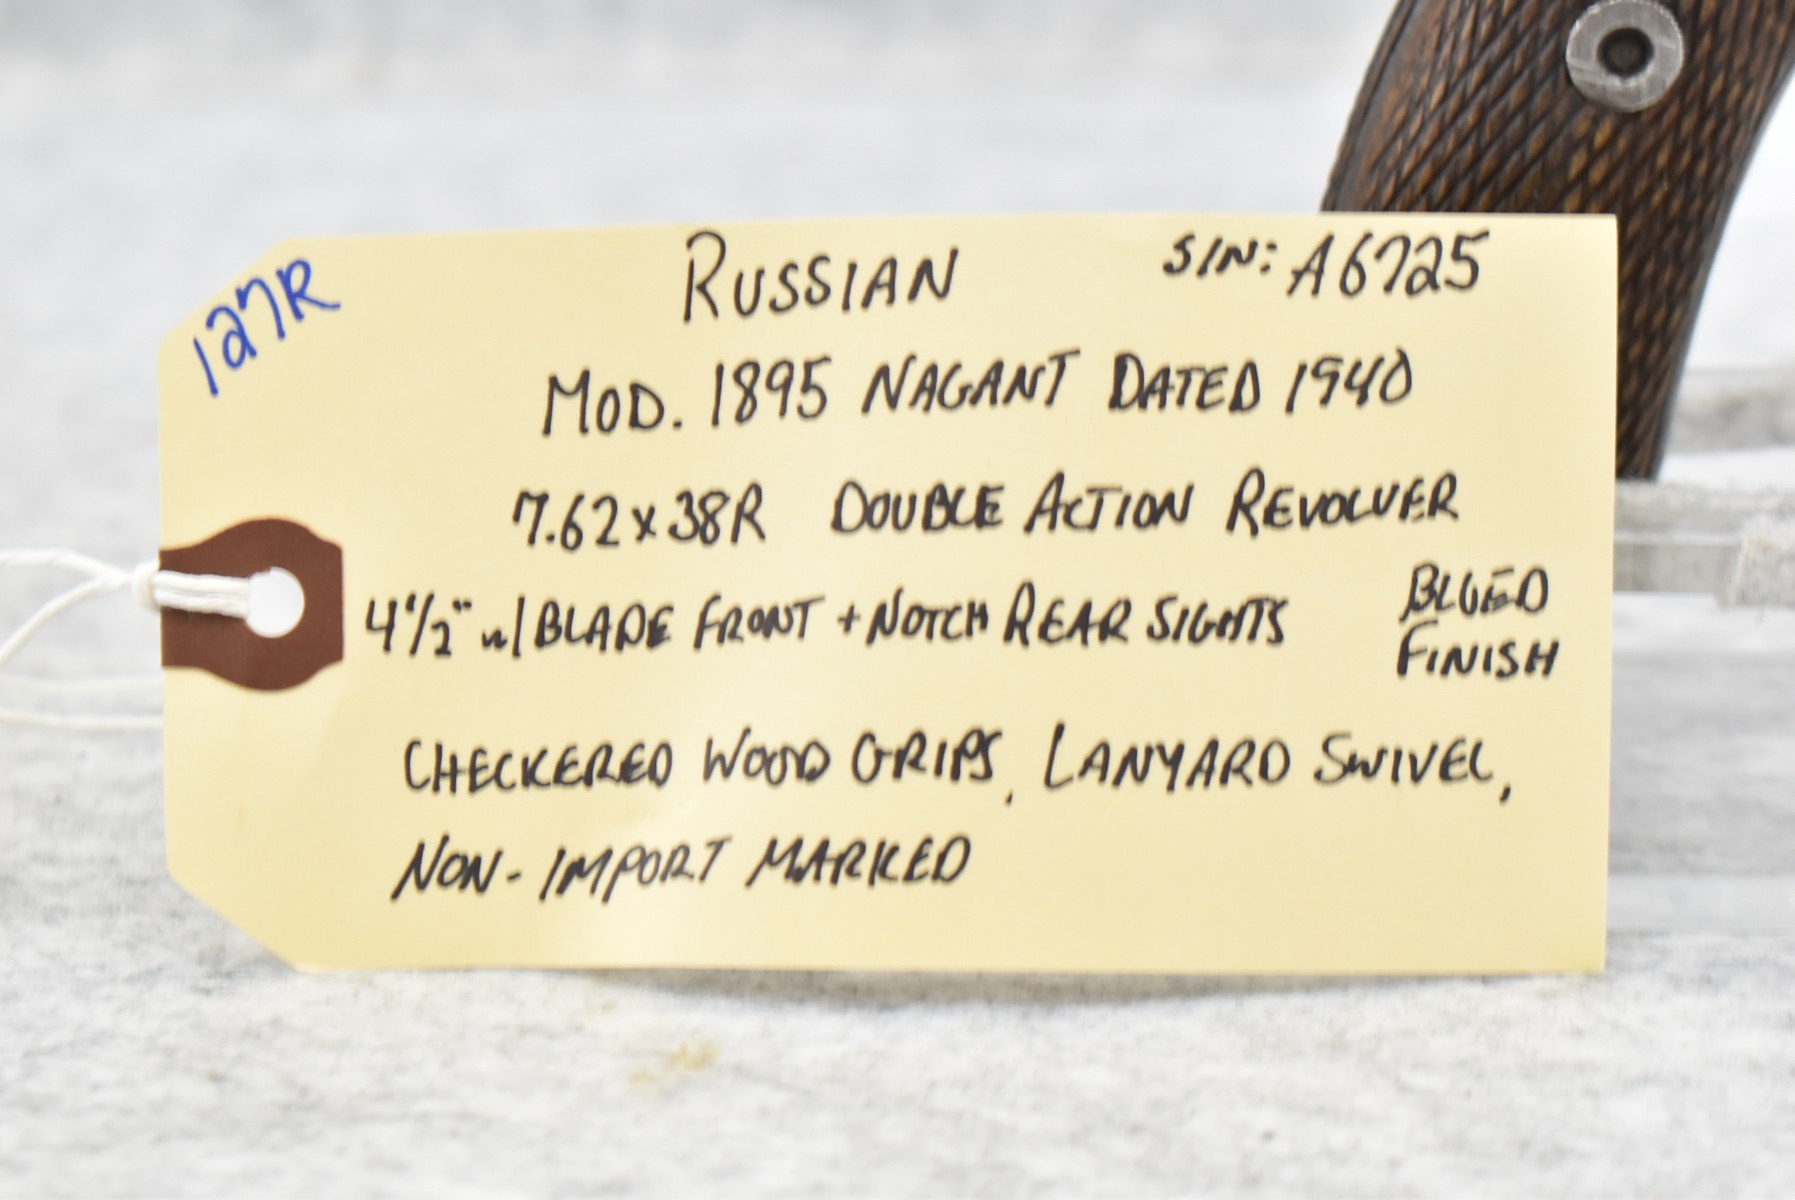 127R
RUSSIAN S/N: A6725
MOD. 1895 NAGANT DATED 1940
7.62x38R DOUBLE ACTION REVOLVER
4 1/2" w/ BLADE FRONT + NOTCH REAR SIGHTS
BLUED
FINISH
CHECKERED WOOD GRIPS, LANYARD SWIVEL,
NON-IMPORT MARKED